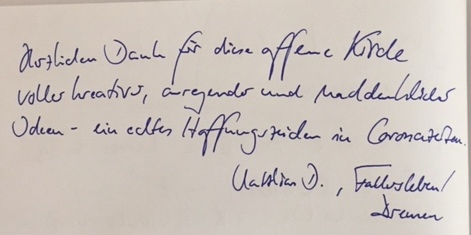 Herzlichen Dank für diese offene Kirche
voller kreativer, anregender und nachdenklicher
Ideen - ein echtes Hoffnungszeichen in Coronazeiten.
D., Fallersleben/
Bremen